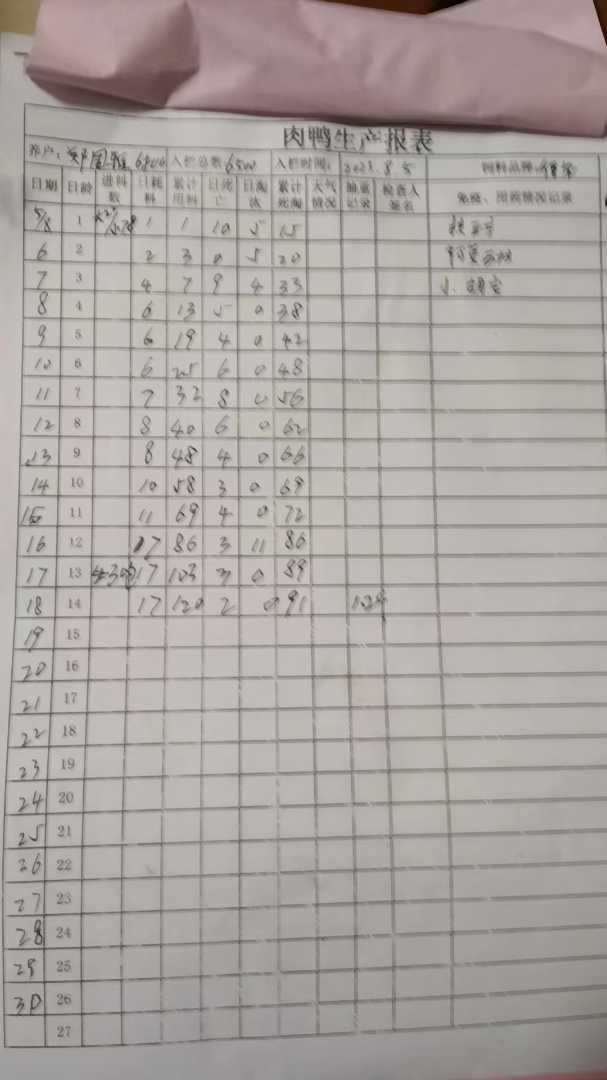 肉鸭生产报表
养户: 入栏总数:6500 入栏时间: 2023.8.5 饲料品牌:
日期 日龄 进料数 日耗料 累计用料 日死亡 日淘汰 累计死淘 天气情况 抽蛋记录 检查人签名 免疫、用药情况记录
5/8 1 1 1 10 5 15
6 2 2 3 0 5 20
7 3 4 7 9 4 33
8 4 6 13 5 0 38
9 5 6 19 4 0 42
10 6 6 25 6 0 48
11 7 7 32 8 0 56
12 8 8 40 6 0 62
13 9 8 48 4 0 66
14 10 10 58 3 0 69
15 11 11 69 4 0 72
16 12 17 86 3 11 86
17 13 17 103 3 0 89
18 14 17 120 2 0 91
19 15
20 16
21 17
22 18
23 19
24 20
25 21
26 22
27 23
28 24
29 25
30 26
27